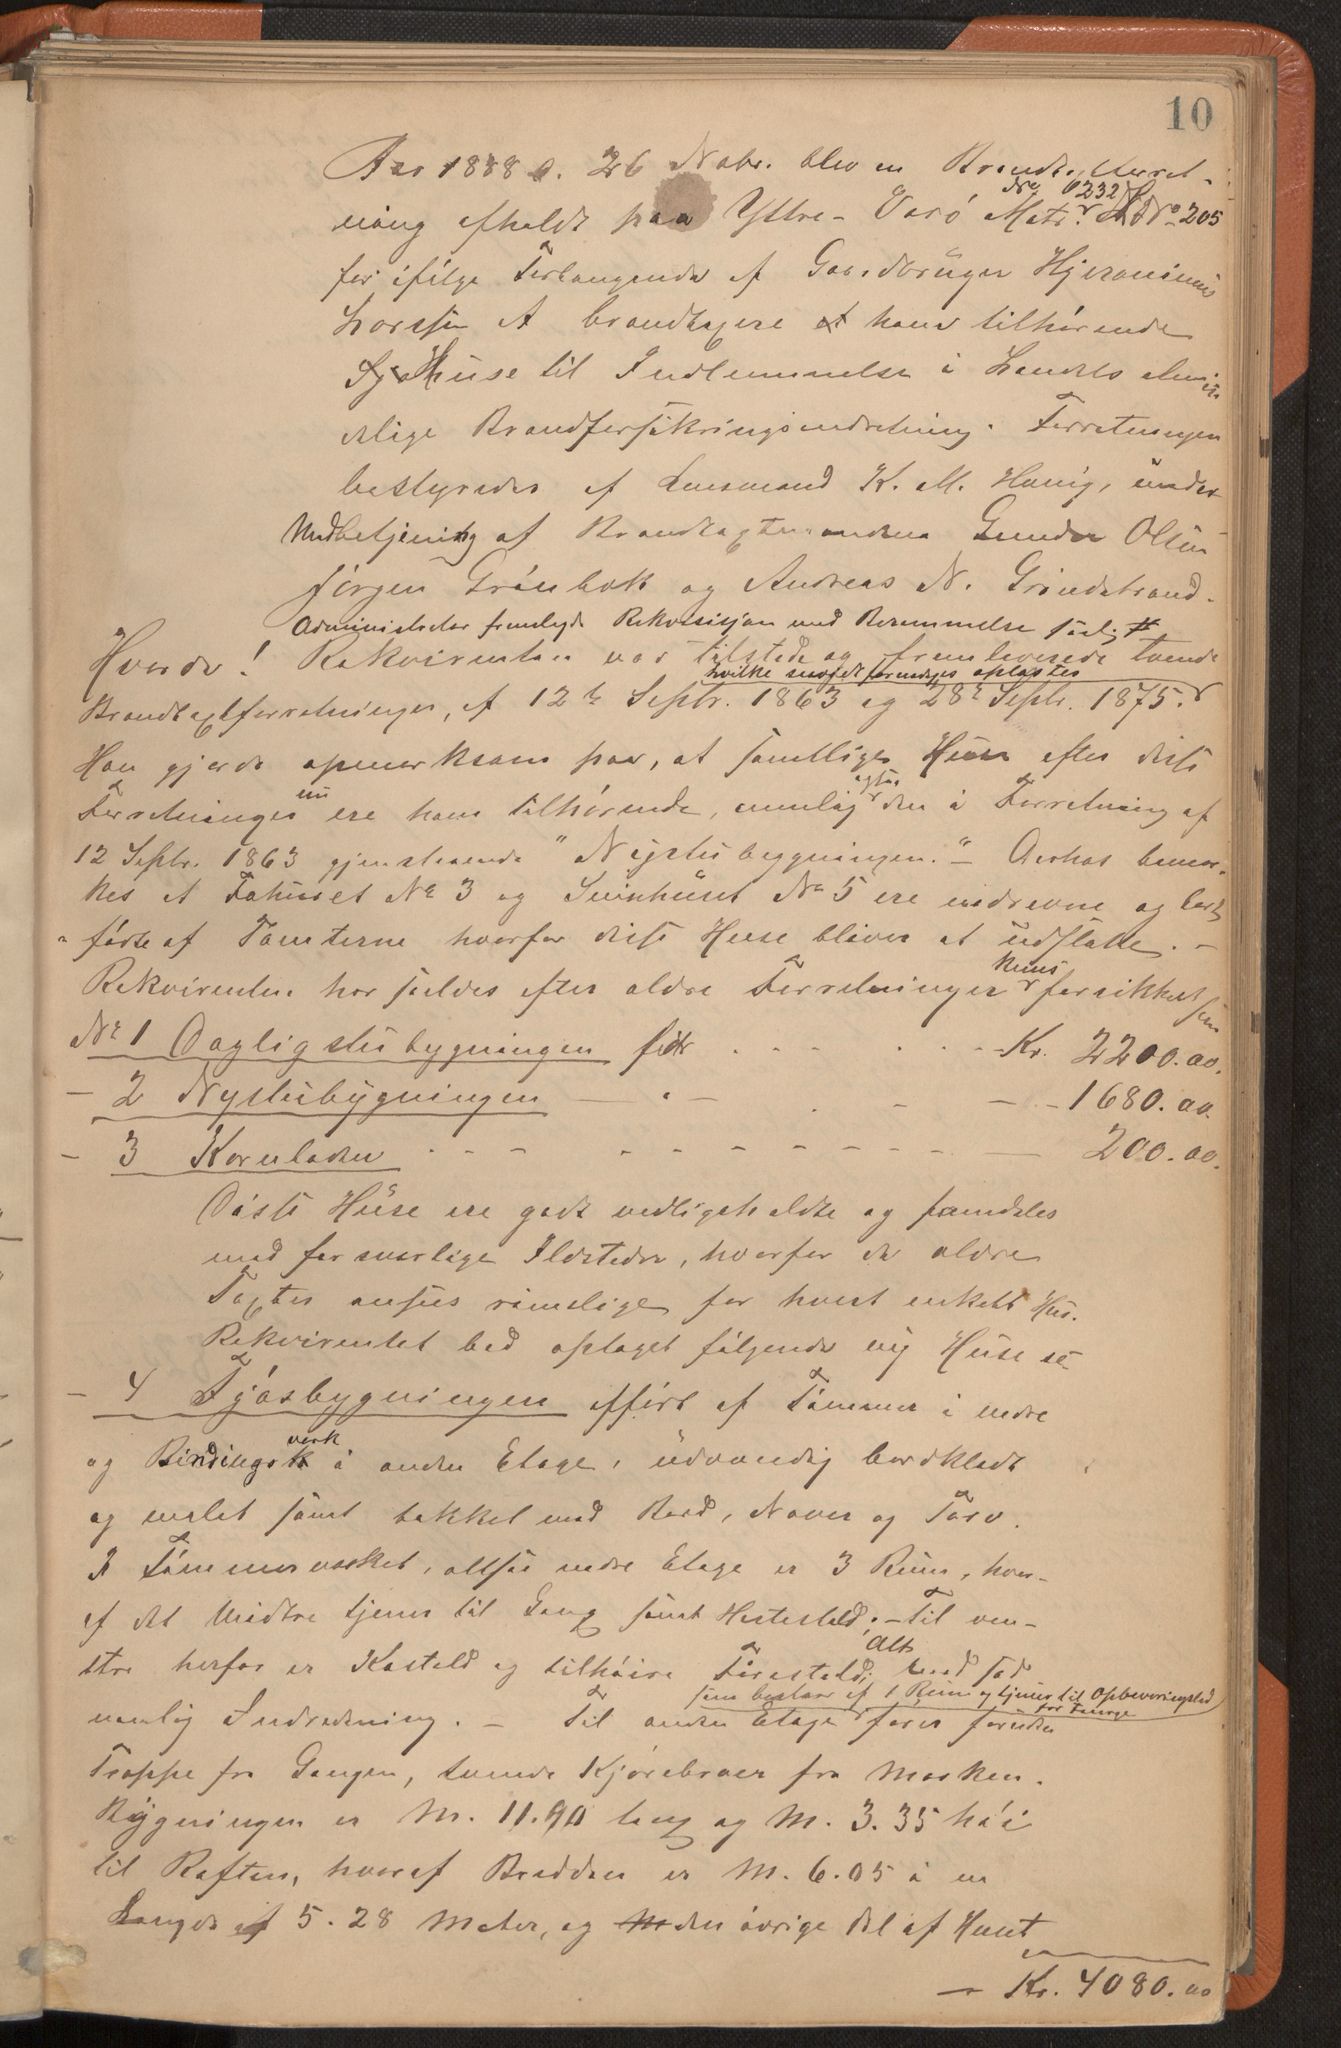 10
Aar 1888 d. 26 Novbr. blev en Brandtaxtforret-
ning afholdt paa Yttre-Verö Matr. No 232 L No 205
for ifölge Forlangende af Gaardbruger Hjeronimus
Larssen at brandtaxere hans tilhörende
Huse til Indlemmelse i Landets almin
delige Brandforsikringsindretning. Forretningen
bestyredes af Lensmand K. M. Havig, under
Medbetjening af Brandtaxtmændene Gunder Olsen
Jörgen Grönbæk og Andreas N. Grindstrand.
Administrator fremlagde Rekvisisjon med Berammelse
Hvorda! Rekvirenten var tilstede og fremleverede tvende
hvilke
Brandtaxtforretninger, af 12te Septr. 1863 og 28de Septr. 1875.
Han gjorde opmerksom paa, at samtlige Huse efter disse
Forretninger nu ere ham tilhörende, nemlig ogsaa den i Forretning af
12 Septr. 1863 gjenstaaende "Nystubygningen." - Derhos bemær-
kes at Fæhuset No 3 og Svinhuset No 5 ere nedrevne og bort
förte af Tomterne hvorfor disse Huse bliver at udslette. -
Rekvirenten har saaledes efter ældre Forretninger Huus forsikket som
No 1 Dagligstubygningen för - - - Kr. 2200.00.
- 2 Nystubygningen - " - - - 1680.00.
- 3 Kornladen - - - 200.00.
Disse Huse ere godt vedligeholdte og fremdeles
med forsvarlige Ildsteder, hvorfor de ældre
Taxter ansees rimelige for hvert enkelt Hus.
Rekvirentet bad optaget fölgende ny Huse se-
- 4 Fjösbygningen opfört af Tömmer i nedre
og Bindingsverk i anden Etage, udvendig bordklædt
og malet samt tækket med Bord, Næver og Torv.
I Tömmerverket, altsaa nedre Etage er 3 Rum, hvor-
af det Midtre tjener til Gang samt Hestestald; - Til ven-
stre herfor er Kostald og tilhöire Faarestald; Alt med sæd
vanlig Indredning. - Til anden Etage som bestaar af 1 Rum og tjener til Opbevaringsted for Fourage förer foruden
Trappe fra Gangen, tvende Kjörebroer fra Marken.
Bygningen er M. 11.90 lang og M. 3.35 höi
til Raften, hvoraf Bredden er M. 6.05 i en
Længde af 5.28 Meter, og den övrige Del af Huset
- Kr. 4080.00